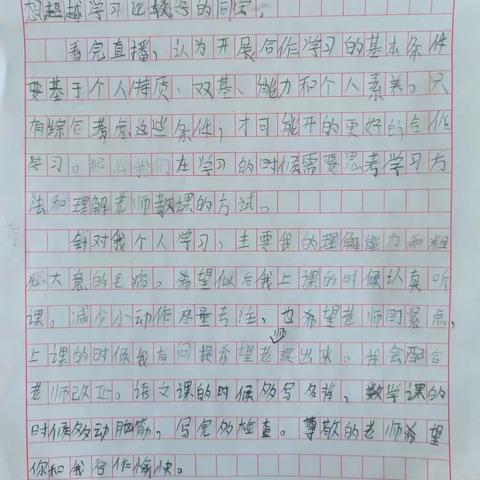 想超越学习比较好的同学。
看完直播，认为开展合作学习的基本条件
要基于个人特质、双基、能力和个人素养。只
有综合考虑这些条件，才可能开的更好的合作
学习。那么我们在学习的时候需要思考学习方
法和理解老师教课的方试。
针对我个人学习，主要我的理解能力和粗
心大意的毛病。希望似后我上课的时候认真听
课，减少小动作尽量专注，也希望老师盯紧点，
上课的时候我有问提希望老师提出来。我会配合
老师改正。语文课的时候多写多背，数学课的
时候多动脑筋，写完多检查。尊敬的老师希望
你和我合作愉快。